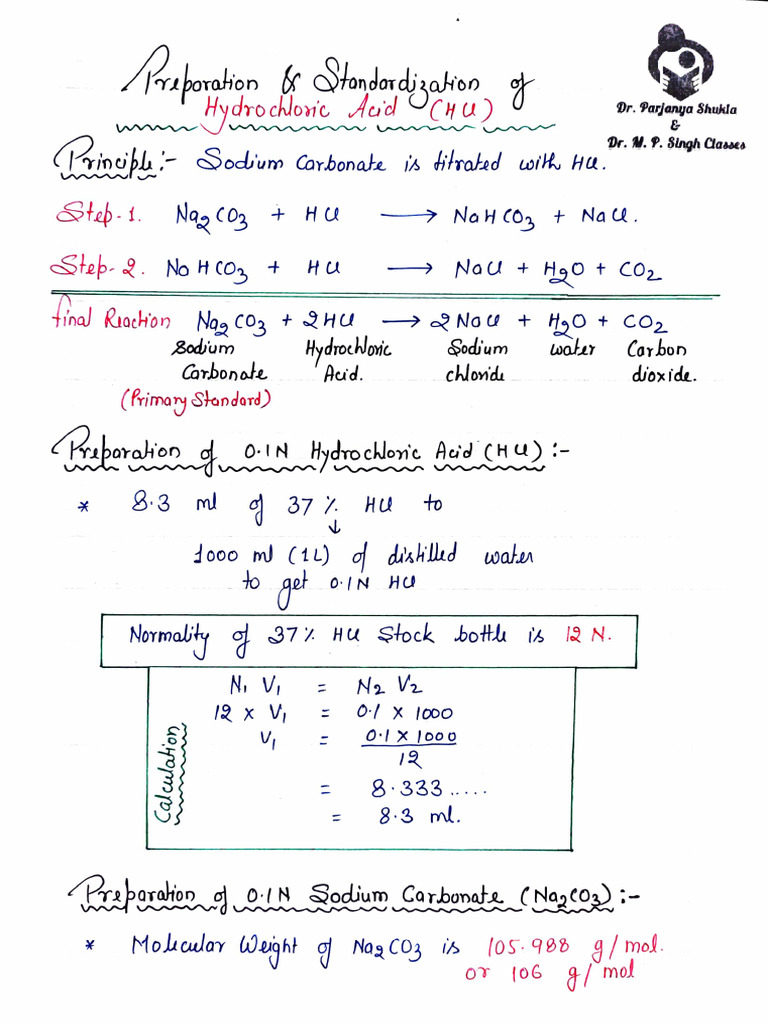 Preparation & Standardization of
Hydrochloric Acid (HCl)
Dr. Parjanya Shukla
&
Dr. M. P. Singh Classes
Principle:- Sodium Carbonate is titrated with HCl.
Step-1. Na2CO3 + HCl → NaHCO3 + NaCl.
Step-2. NaHCO3 + HCl → NaCl + H2O + CO2
final Reaction Na2CO3 + 2HCl → 2NaCl + H2O + CO2
Sodium Hydrochloric Sodium water Carbon
Carbonate Acid. chloride dioxide.
(Primary Standard)
Preparation of 0.1N Hydrochloric Acid (HCl) :-
* 8.3 ml of 37 % HCl to
↓
1000 ml (1L) of distilled water
to get 0.1N HCl
Normality of 37% HCl Stock bottle is 12 N.
Calculation
N1 V1 = N2 V2
12 x V1 = 0.1 x 1000
V1 = 0.1 x 1000
12
= 8.333.....
= 8.3 ml.
Preparation of 0.1N Sodium Carbonate (Na2CO3) :-
* Molecular Weight of Na2CO3 is 105.988 g/mol.
or 106 g/mol